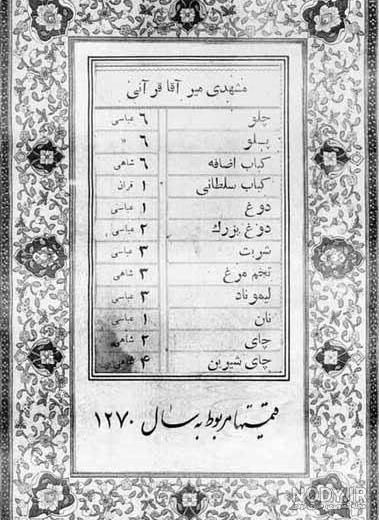 مشهدی میر آقا قرآنی
چلو ٦ عباسی
پلو ٦ »
کباب اضافه ٦ شاهی
کباب سلطانی ١ قران
دوغ ١ عباسی
دوغ بزرگ ٢ عباسی
شربت ٣ عباسی
تخم مرغ ٣ شاهی
لیموناد ٣ عباسی
نان ١ عباسی
چای ٢ شاهی
چای شیرین ۴ شاهی
قیمتها مربوط به سال ١٢٧٠
NODY.IR